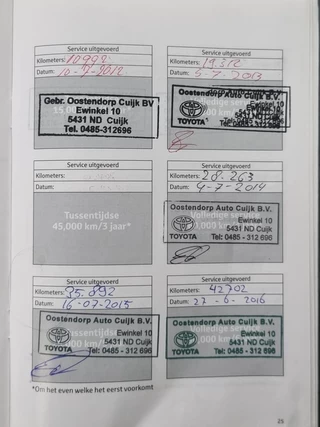 Service uitgevoerd
Kilometers: 10992
Datum: 10-7-2012
Gebr. Oostendorp Cuijk BV
Ewinkel 10
5431 ND Cuijk
Tel. 0485-312696
Service uitgevoerd
Kilometers: 19.312
Datum: 5-7-2013
Oostendorp Auto Cuijk B.V.
Ewinkel 10
5431 ND Cuijk
TOYOTA Tel: 0485 - 312 696
Service uitgevoerd
Kilometers:
Datum:
Tussentijdse
45,000 km/3 jaar*
Service uitgevoerd
Kilometers: 28.263
Datum: 4-7-2014
Oostendorp Auto Cuijk B.V.
Ewinkel 10
5431 ND Cuijk
TOYOTA Tel: 0485 - 312 696
Service uitgevoerd
Kilometers: 35.892
Datum: 16-07-2015
Oostendorp Auto Cuijk B.V.
Ewinkel 10
5431 ND Cuijk
TOYOTA Tel: 0485 - 312 696
Service uitgevoerd
Kilometers: 42702
Datum: 27-6-2016
Oostendorp Auto Cuijk B.V.
Ewinkel 10
5431 ND Cuijk
TOYOTA Tel: 0485 - 312 696
*Om het even welke het eerst voorkomt